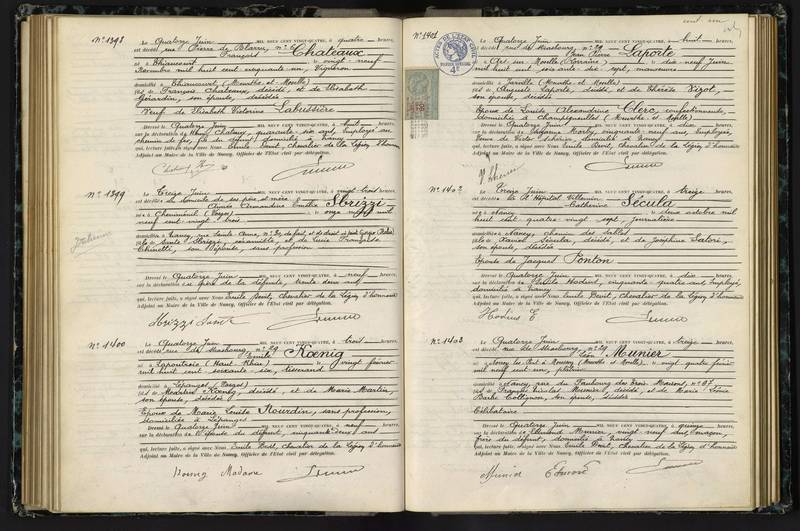 N° 1398 Le Quatorze Juin MIL NEUF CENT VINGT-QUATRE, à quatre heures,
est décédé rue Pierre de Blarru, n° 6
François Chateaux
né à Thiaucourt le vingt-neuf
Novembre mil huit cent cinquante-un, Vigneron
domicilié à Thiaucourt (Meurthe-et-Moselle)
fils de François Chateaux, décédé, et de Elisabeth
Gérardin, son épouse, décédée
Veuf de Elisabeth Victorine Labussière
Dressé le Quatorze Juin MIL NEUF CENT VINGT-QUATRE, à huit heures,
sur la déclaration de Henry Chateaux, quarante six ans, Employé au
chemin de fer, fils du défunt, domicilié à Nancy
qui, lecture faite, a signé avec Nous Emile Devit, Chevalier de la Légion d'honneur
Adjoint au Maire de la Ville de Nancy, Officier de l'Etat civil par délégation.
N° 1399 Le Treize Juin MIL NEUF CENT VINGT-QUATRE, à vingt-trois heures,
est décédée au domicile de ses père et mère
Amandine Emilia Sbrizzi
née à Cheniménil (Vosges) le onze mil
neuf cent vingt trois
Italienne
domiciliée à Nancy, rue Sainte Anne, n° 30
fille de Santo Sbrizzi, cimentier, et de Lucie Françoise
Chinetti, son épouse, sans profession
Dressé le Quatorze Juin MIL NEUF CENT VINGT-QUATRE, à neuf heures,
sur la déclaration du père de la défunte, trente deux ans
qui, lecture faite, a signé avec Nous Emile Devit, Chevalier de la Légion d'honneur
Adjoint au Maire de la Ville de Nancy, Officier de l'Etat civil par délégation.
Sbrizzi Santo
N° 1400 Le Quatorze Juin MIL NEUF CENT VINGT-QUATRE, à trois heures,
est décédé rue de Strasbourg, n° 29
Emile Kœnig
né à Lapoutroie (Haut Rhin) le vingt février
mil huit cent soixante six, tisserand
domicilié à Lépanges (Vosges)
fils de Kœnig, décédé, et de Marie Martin,
son épouse, décédée
Epoux de Marie Louise Hourdin, sans profession,
domiciliée à Lépanges
Dressé le Quatorze Juin MIL NEUF CENT VINGT-QUATRE, à neuf heures,
sur la déclaration de l'épouse du défunt, cinquante ans
qui, lecture faite, a signé avec Nous Emile Devit, Chevalier de la Légion d'honneur
Adjoint au Maire de la Ville de Nancy, Officier de l'Etat civil par délégation.
Koenig Madame
cent un
N° 1401 Le Quatorze Juin MIL NEUF CENT VINGT-QUATRE, à huit heures,
est décédé rue de Strasbourg, n° 29
Jean Pierre Laporte
né à Ars-sur-Moselle (Lorraine) le dix-neuf Juin
mil huit cent soixante dix sept, manœuvre
domicilié à Jarville (Meurthe et Moselle)
fils de Auguste Laporte, décédé, et de Thérèse Vizot,
son épouse, décédée
Epoux de Louise Alexandrine Clerc, confectionneuse,
domiciliée à Champigneulles (Meurthe et Moselle)
Dressé le Quatorze Juin MIL NEUF CENT VINGT-QUATRE, à dix heures,
sur la déclaration de Marty, cinquante-neuf ans, Employé,
domicilié à Nancy
qui, lecture faite, a signé avec Nous Emile Devit, Chevalier de la Légion d'honneur
Adjoint au Maire de la Ville de Nancy, Officier de l'Etat civil par délégation.
N° 1402 Le Treize Juin MIL NEUF CENT VINGT-QUATRE, à treize heures,
est décédée à l'Hôpital Villemin
Catherine Sécula
née à Nancy le deux octobre mil
huit cent quatre vingt sept, journalière
domiciliée à Nancy, Chemin des Sables
fille de Xavier Sécula, décédé, et de Joséphine Satori,
son épouse, décédée
Epouse de Jacques Ponton
Dressé le Quatorze Juin MIL NEUF CENT VINGT-QUATRE, à dix heures,
sur la déclaration de Hodin, cinquante-quatre ans, Employé,
domicilié à Nancy
qui, lecture faite, a signé avec Nous Emile Devit, Chevalier de la Légion d'honneur
Adjoint au Maire de la Ville de Nancy, Officier de l'Etat civil par délégation.
N° 1403 Le Quatorze Juin MIL NEUF CENT VINGT-QUATRE, à treize heures,
est décédé rue de Strasbourg, n° 29
Léon Munier
né à Norroy-lès-Pont à Mousson (Meurthe et Moselle), le vingt quatre février
mil neuf cent un, plâtrier
domicilié à Nancy, rue du Faubourg des Trois Maisons, n° 87
fils de François Munier, décédé, et de Marie
Barbe Collignon, son épouse, décédée
Célibataire
Dressé le Quatorze Juin MIL NEUF CENT VINGT-QUATRE, à quinze heures,
sur la déclaration de Edmond Munier, vingt neuf ans, maçon,
frère du défunt, domicilié à Nancy
qui, lecture faite, a signé avec Nous Emile Devit, Chevalier de la Légion d'honneur
Adjoint au Maire de la Ville de Nancy, Officier de l'Etat civil par délégation.
Munier Edmond